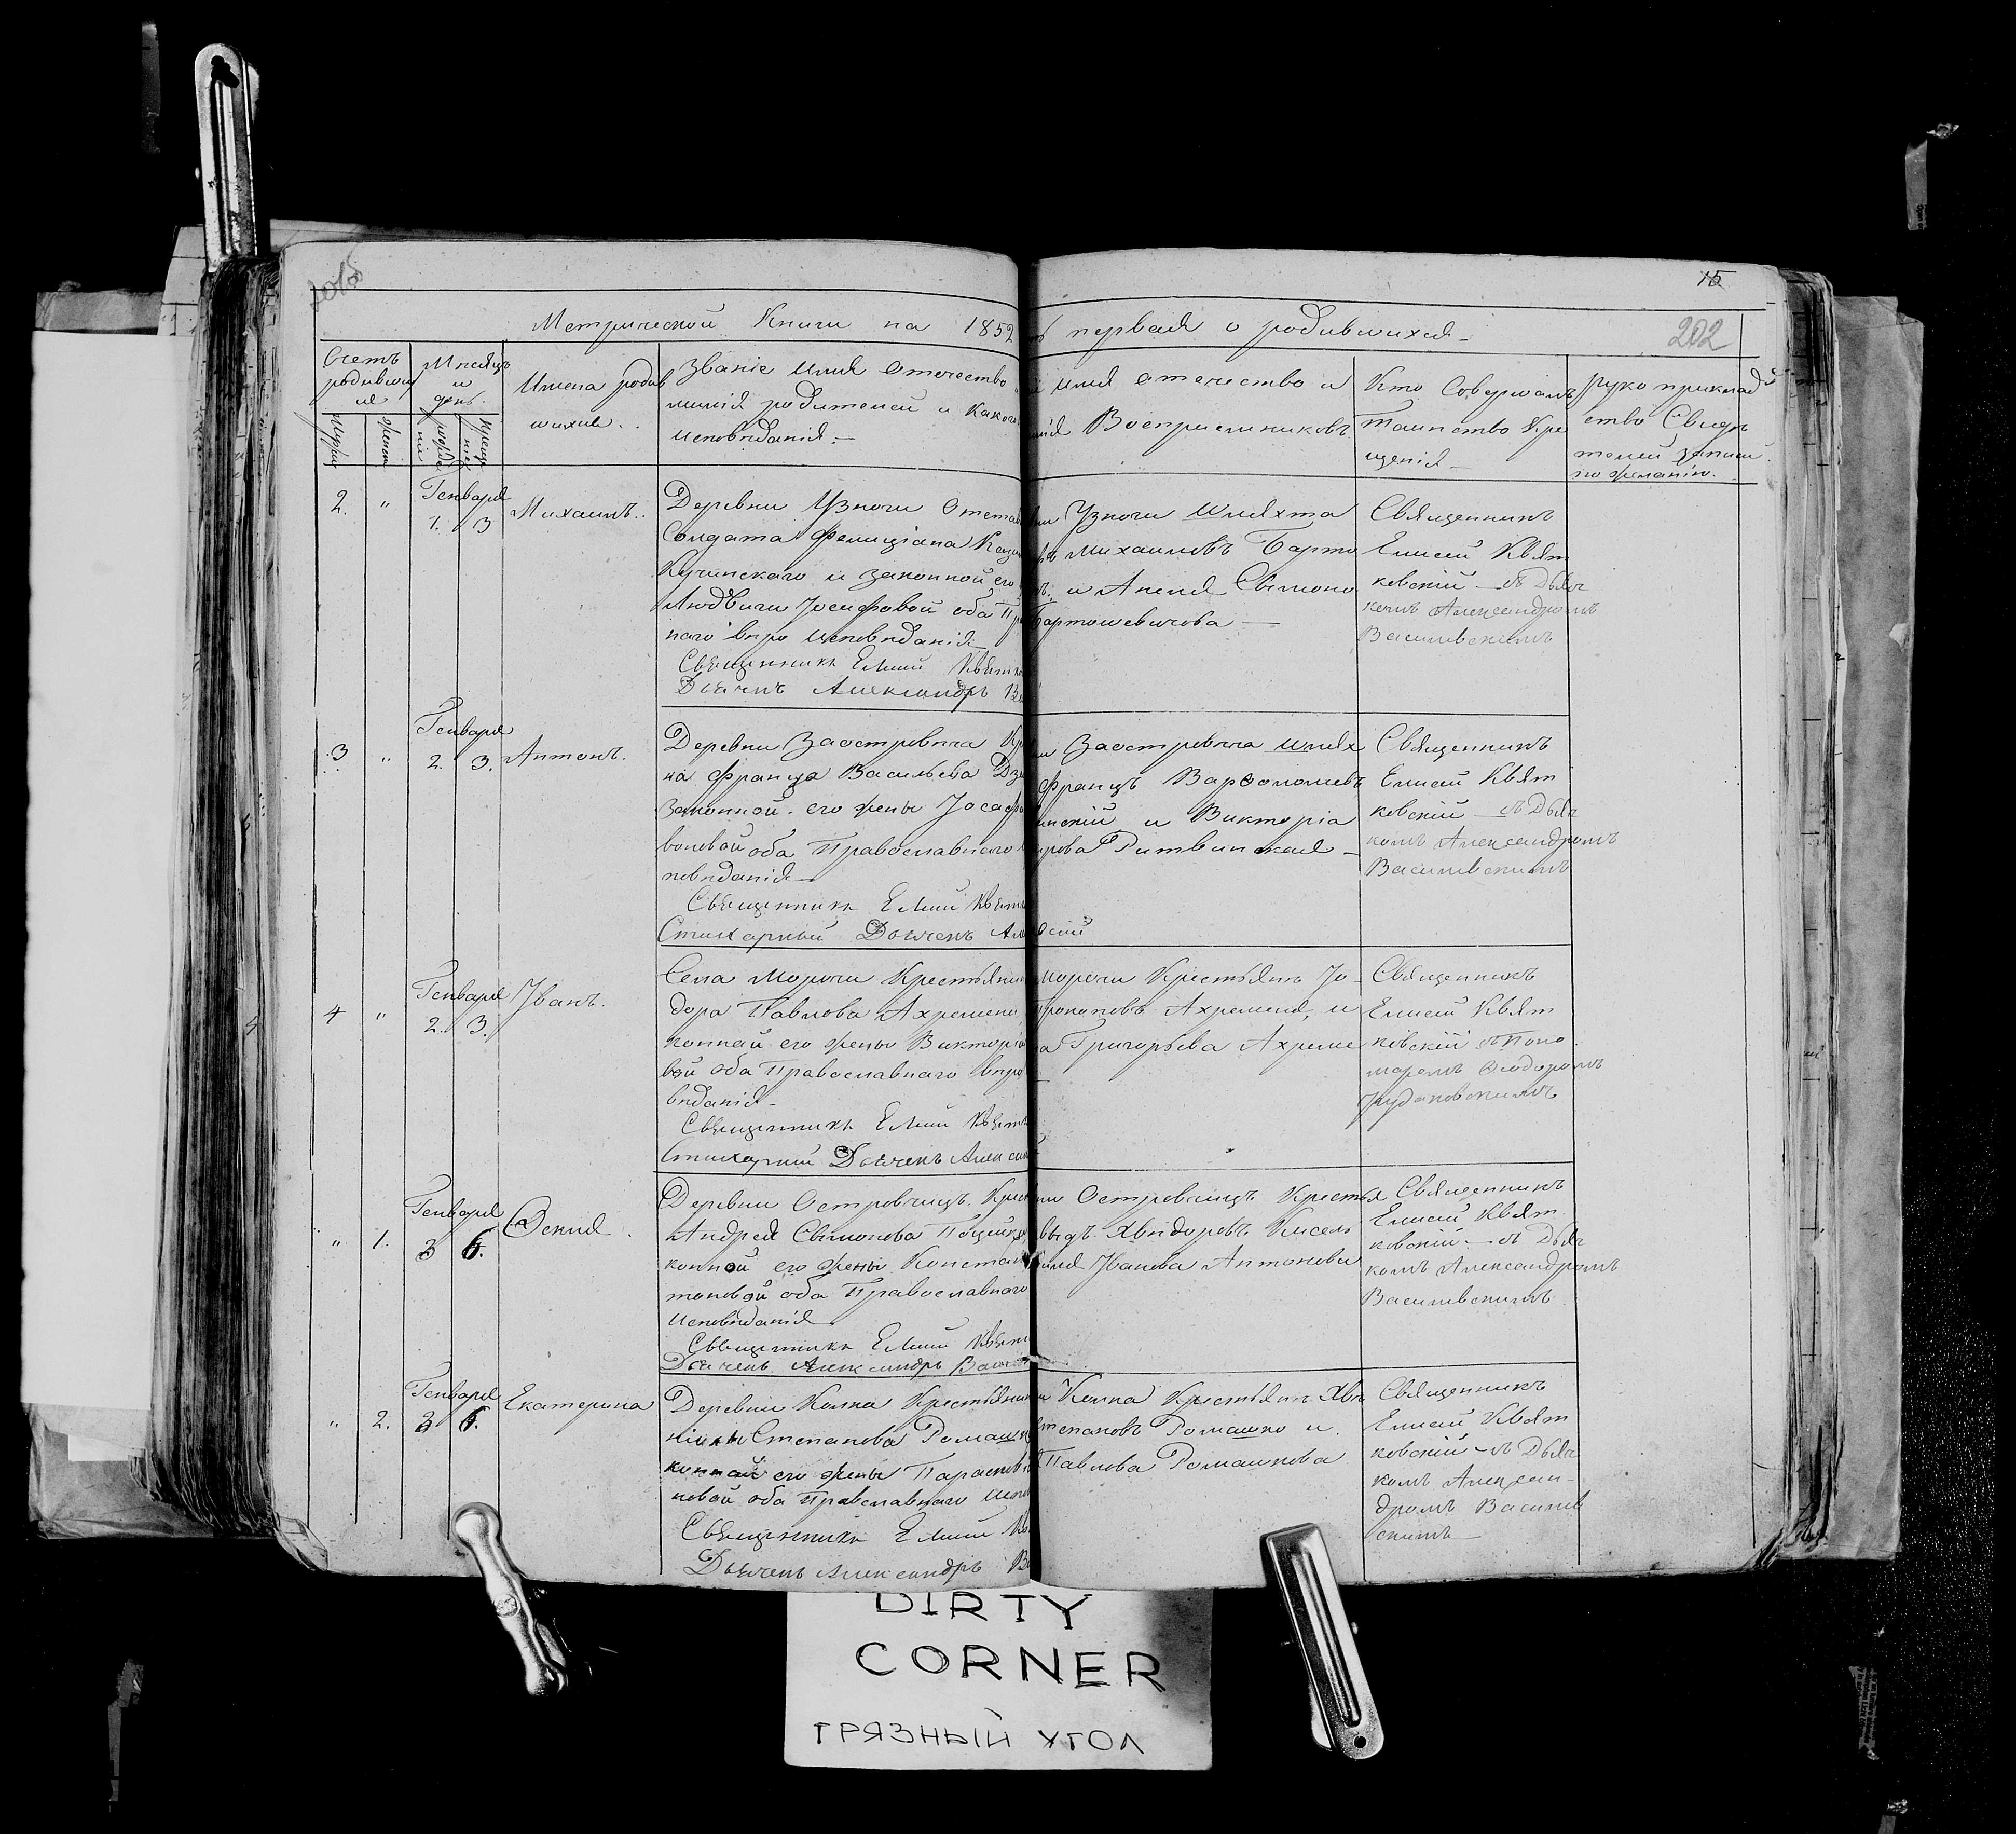 15
202
Метрической Книги на 1852
первая о родившихся
Счетъ родивших
ся
Мѣсяцъ
и
день.
Имена родив
шихся.
Званіе имя отечество
милія родителей и какого
исповѣданія
имя отечество и
Воспріемниковъ
Кто Совершалъ
Таинство Кре
щенія
Рукоприклад
ство Свидѣ
телей записи
по желанію.
2. " Генваря
1. 3
Михаилъ.
Деревни Узночи Отста
Солдата Фелиціана Кази
Кучинскаго и законной его
Людвиги Іосифовой оба Пра
наго вѣро исповѣданія
Священникъ Елисей Квятк
Дьячекъ Александръ Ва
Узночи Шляхта
Михаиловъ Барто
и Анеля Симоно
Бартошевичова
Священникъ
Елисей Квят
ковскій съ Дьяч
комъ Александромъ
Василевскимъ
3 " Генваря
2. 3.
Антонъ.
Деревни Заостровеча Кр
на Франца Васильева Дз
законной его жены Іосаф
воновой оба Православнаго
повѣданія
Священникъ Елисей Квятк
Стихарный Дьячекъ Але
вскій
Заостровеча шлях
Францъ Варѳоломеевъ
инскій и Викторіа
рова Ритвинская
Священникъ
Елисей Квят
ковскій съ Дьяч
комъ Александромъ
Василевскимъ
4 " Генваря
2. 3.
Іванъ.
Села Морочи Крестьянин
дора Павлова Ахремени
конной его жены Викторіи
вой оба Православнаго вѣро
вѣданія
Священникъ Елисей Квятк
Стихарный Дьячекъ Алекса
Морочи Крестьянъ Іо
Прокоповъ Ахременя, и
Григорьева Ахреме
Священникъ
Елисей Квят
ковскій съ Поно
маремъ Ѳеодоромъ
" 1. Генваря
3 6.
Деревни Островчицъ Крест
Андрея Симонова
конной его жены Констан
тоновой оба Православнаго
исповѣданія
Священникъ Елисей Квятк
Дьячекъ Александръ Васил
Островчицъ Крестья
Хвіодоровъ Кисель
Іванова Антонови
Священникъ
Елисей Квят
ковскій съ Дьяч
комъ Александромъ
Василевскимъ
" 2. Генваря
3 6.
Екатерина
Деревни Колка Крестьянин
Степанова Ромашк
конной его жены Параскев
новой оба Православнаго испо
Священникъ Елисей Кв
Дьячекъ Александръ Ва
Колка Крестьянъ Хве
Степановъ Ромашко и
Павлова Ромашкова
Священникъ
Елисей Квят
ковскій съ Дьяч
комъ Алексан
дромъ Василев
скимъ
DIRTY
CORNER
ГРЯЗНЫЙ УГОЛ